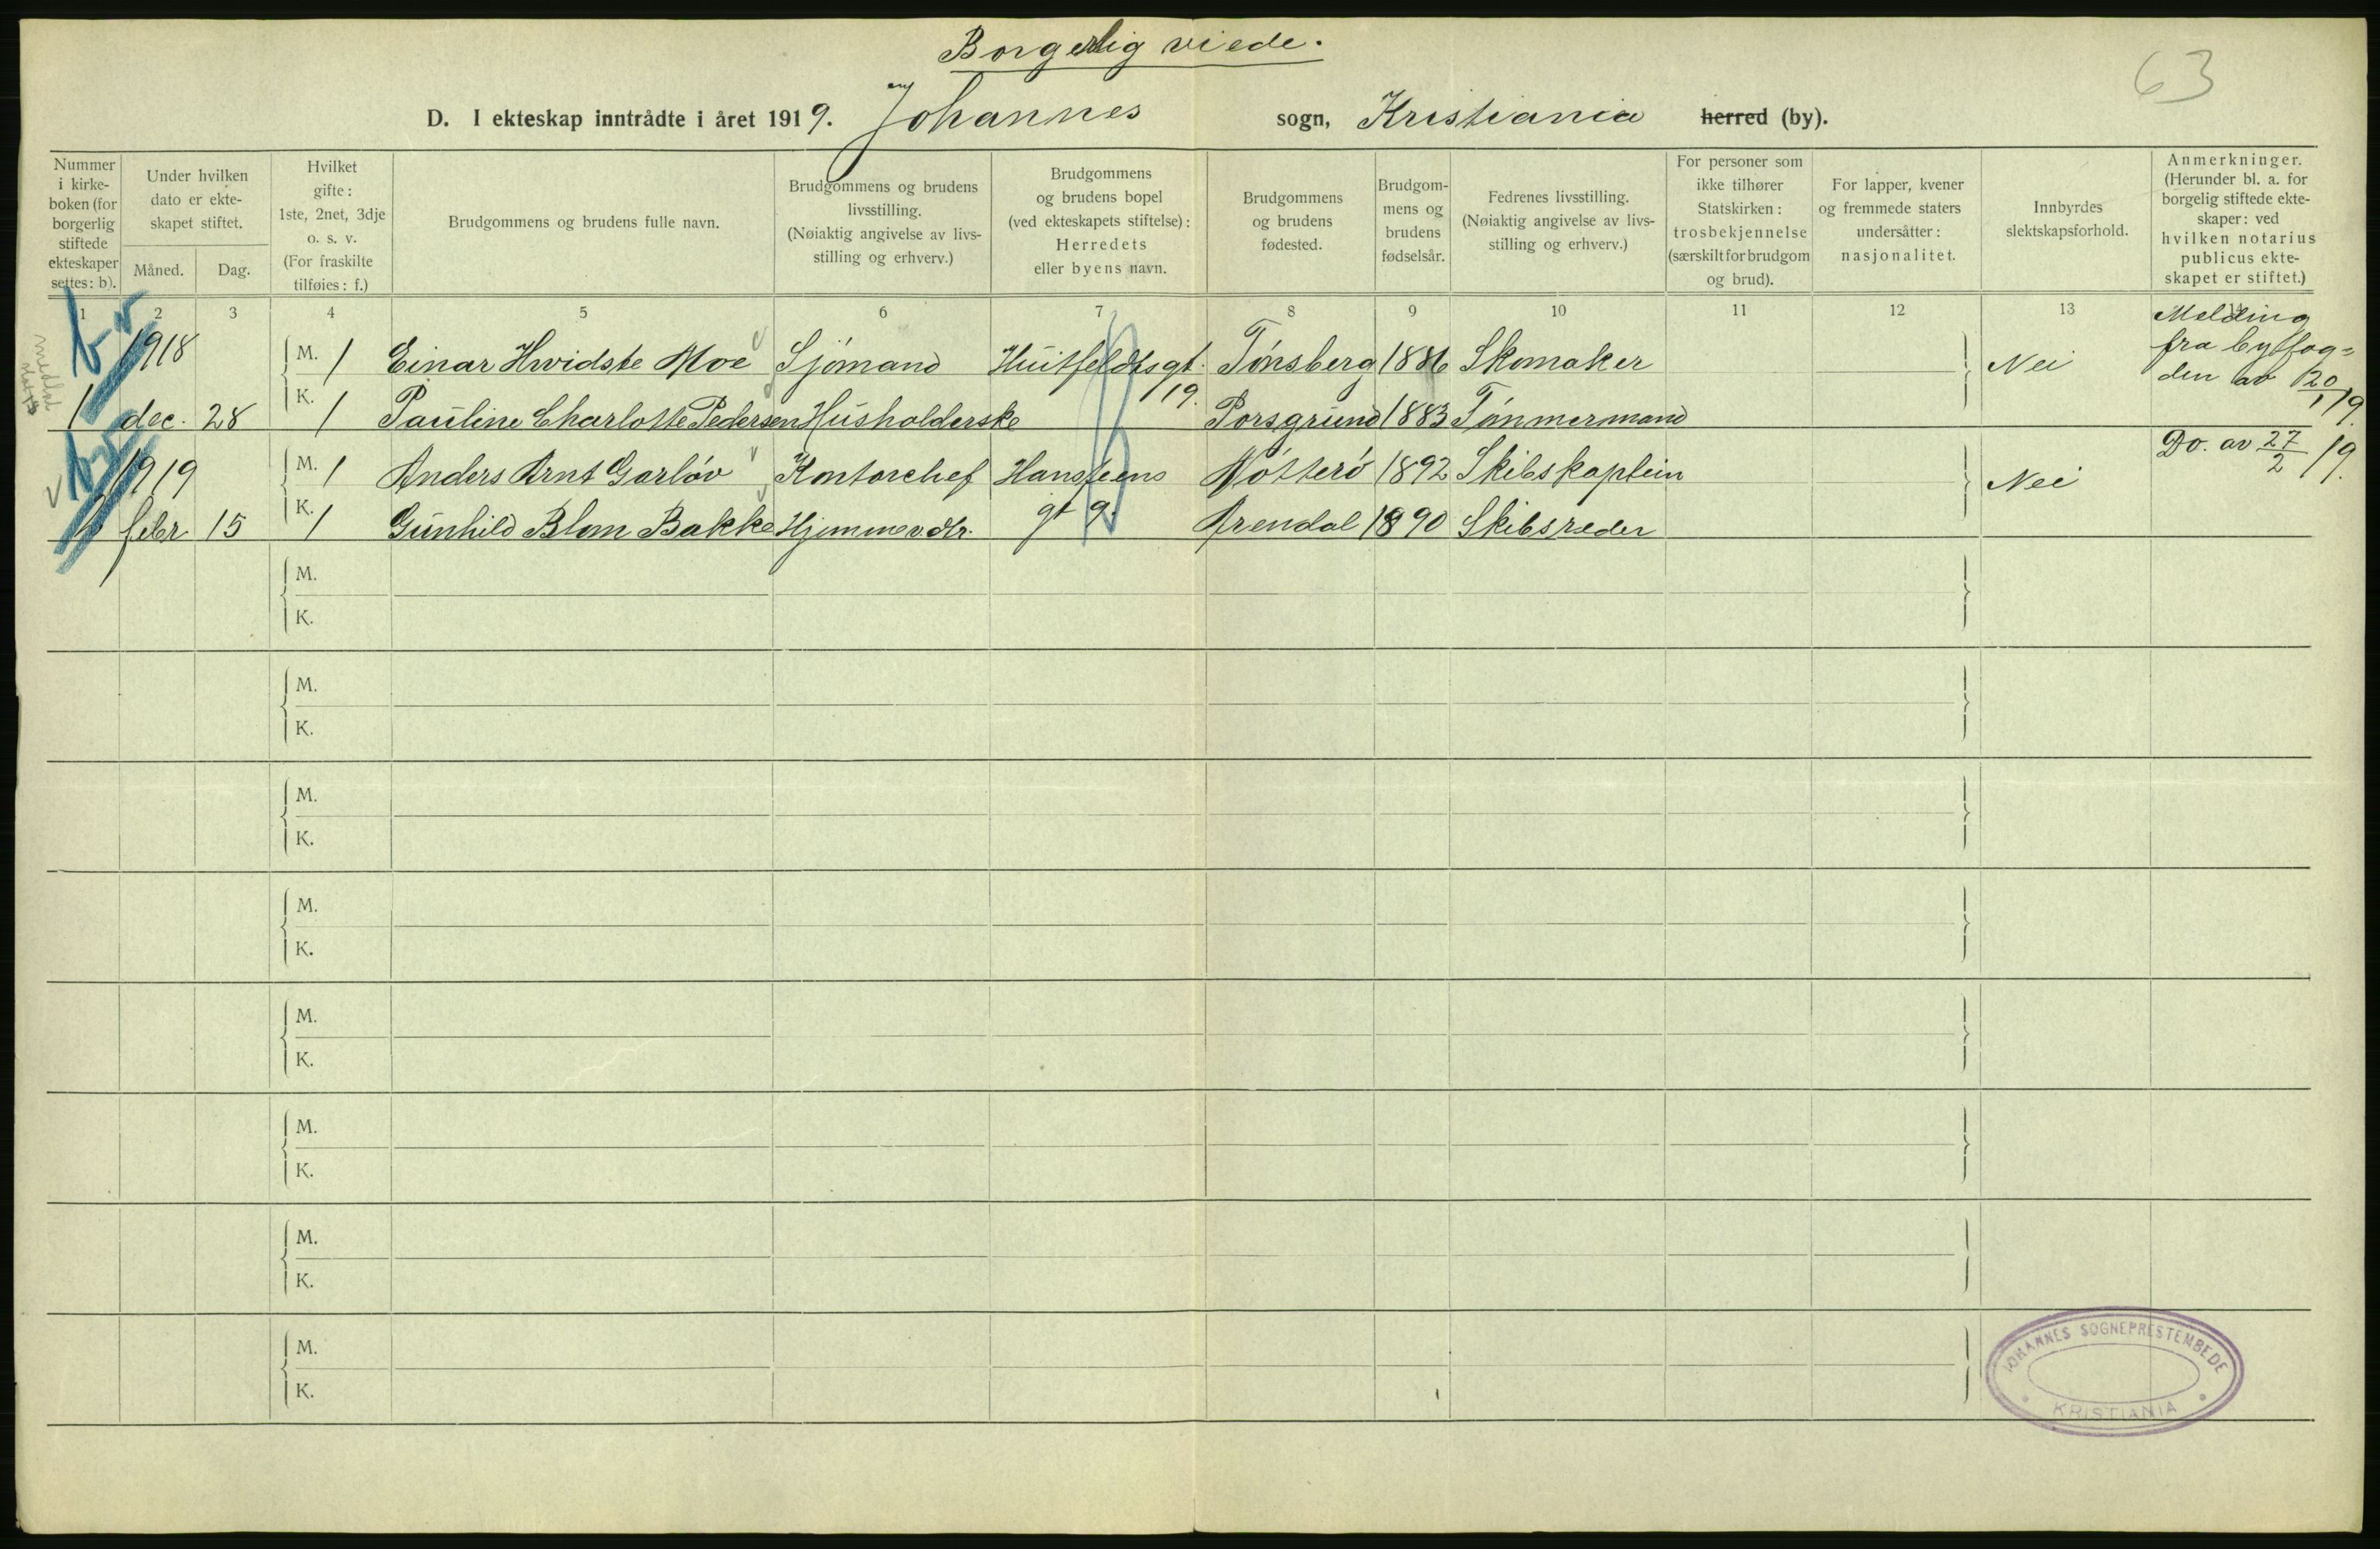 Borgerlig viede.
63
D. I ekteskap inntrådte i året 1919. Johannes sogn, Kristiania herred (by).
Nummer i kirkeboken (for borgerlig stiftede ekteskaper settes: b).
Under hvilken dato er ekteskapet stiftet.
Måned. Dag.
Hvilket gifte: 1ste, 2net, 3dje o. s. v. (For fraskilte tilføies: f.)
Brudgommens og brudens fulle navn.
Brudgommens og brudens livsstilling. (Nøiaktig angivelse av livsstilling og erhverv.)
Brudgommens og brudens bopel (ved ekteskapets stiftelse): Herredets eller byens navn.
Brudgommens og brudens fødested.
Brudgommens og brudens fødselsår.
Fedrenes livsstilling. (Nøiaktig angivelse av livsstilling og erhverv.)
For personer som ikke tilhører Statskirken: trosbekjennelse (særskilt for brudgom og brud).
For lapper, kvener og fremmede staters undersåtter: nasjonalitet.
Innbyrdes slektskapsforhold.
Anmerkninger. (Herunder bl. a. for borgelig stiftede ekteskaper: ved hvilken notarius publicus ekteskapet er stiftet.)
1 2 3 4 5 6 7 8 9 10 11 12 13
b 1918 M. 1 Einar Hvidste Moe Sjømand Huitfeldtsgt. 19. Tønsberg 1886 Skomaker Nei Melding fra byfogden av 20/1 19.
1 dec. 28 K. 1 Pauline Charlotte Pedersen Husholderske Porsgrund 1883 Tømmermand
1919 M. 1 Anders Arnt Garløv Kontorchef Hansteens gt 9. Nøtterø 1892 Skibskaptein Nei Do. av 27/2 19.
febr 15 K. 1 Gunhild Blom Bakke Hjemmev. dtr. Arendal 1890 Skibsreder
M.
K.
M.
K.
M.
K.
M.
K.
M.
K.
M.
K.
M.
K.
M.
K.
JOHANNES SOGNEPRESTEMBEDE
KRISTIANIA